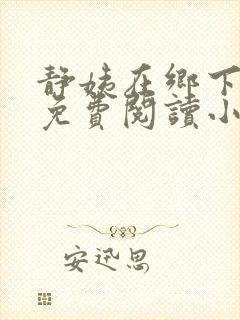 静姨在鄉下
免費閱讀小
安迅思